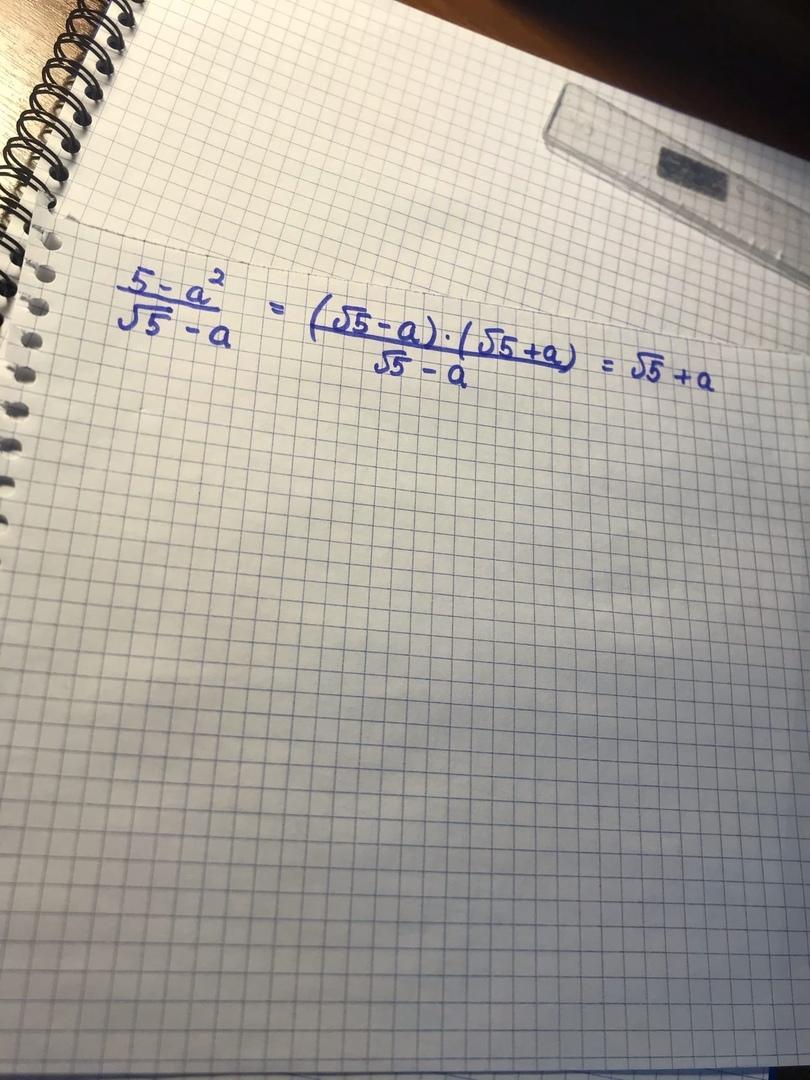 (5-a²)/(√5-a) = ((√5-a)·(√5+a))/(√5-a) = √5+a